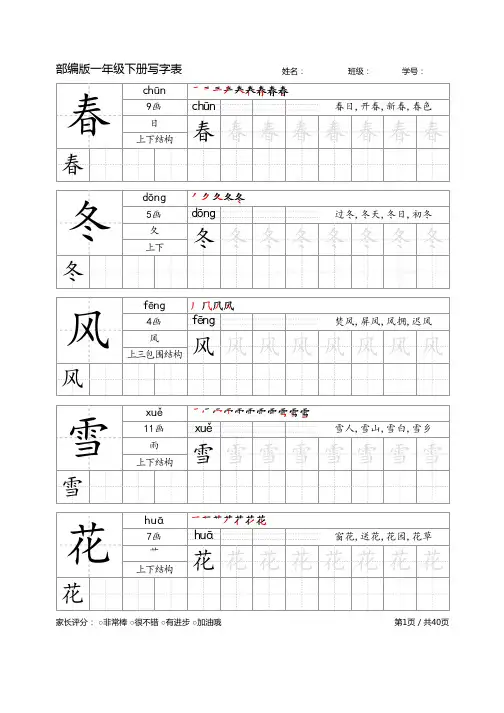 部编版一年级下册写字表 姓名： 班级： 学号：
春
chūn
9画
日
上下结构
chūn 春日,开春,新春,春色
春 春 春 春 春 春 春 春
春
冬
dōng
5画
夂
上下
dōng 过冬,冬天,冬日,初冬
冬 冬 冬 冬 冬 冬 冬 冬
冬
风
fēng
4画
风
上三包围结构
fēng 焚风,屏风,风拥,迟风
风 风 风 风 风 风 风 风
风
雪
xuě
11画
雨
上下结构
xuě 雪人,雪山,雪白,雪乡
雪 雪 雪 雪 雪 雪 雪 雪
雪
花
huā
7画
艹
上下结构
huā 窗花,送花,花园,花草
花 花 花 花 花 花 花 花
花
家长评分： ○非常棒 ○很不错 ○有进步 ○加油哦 第1页 / 共40页